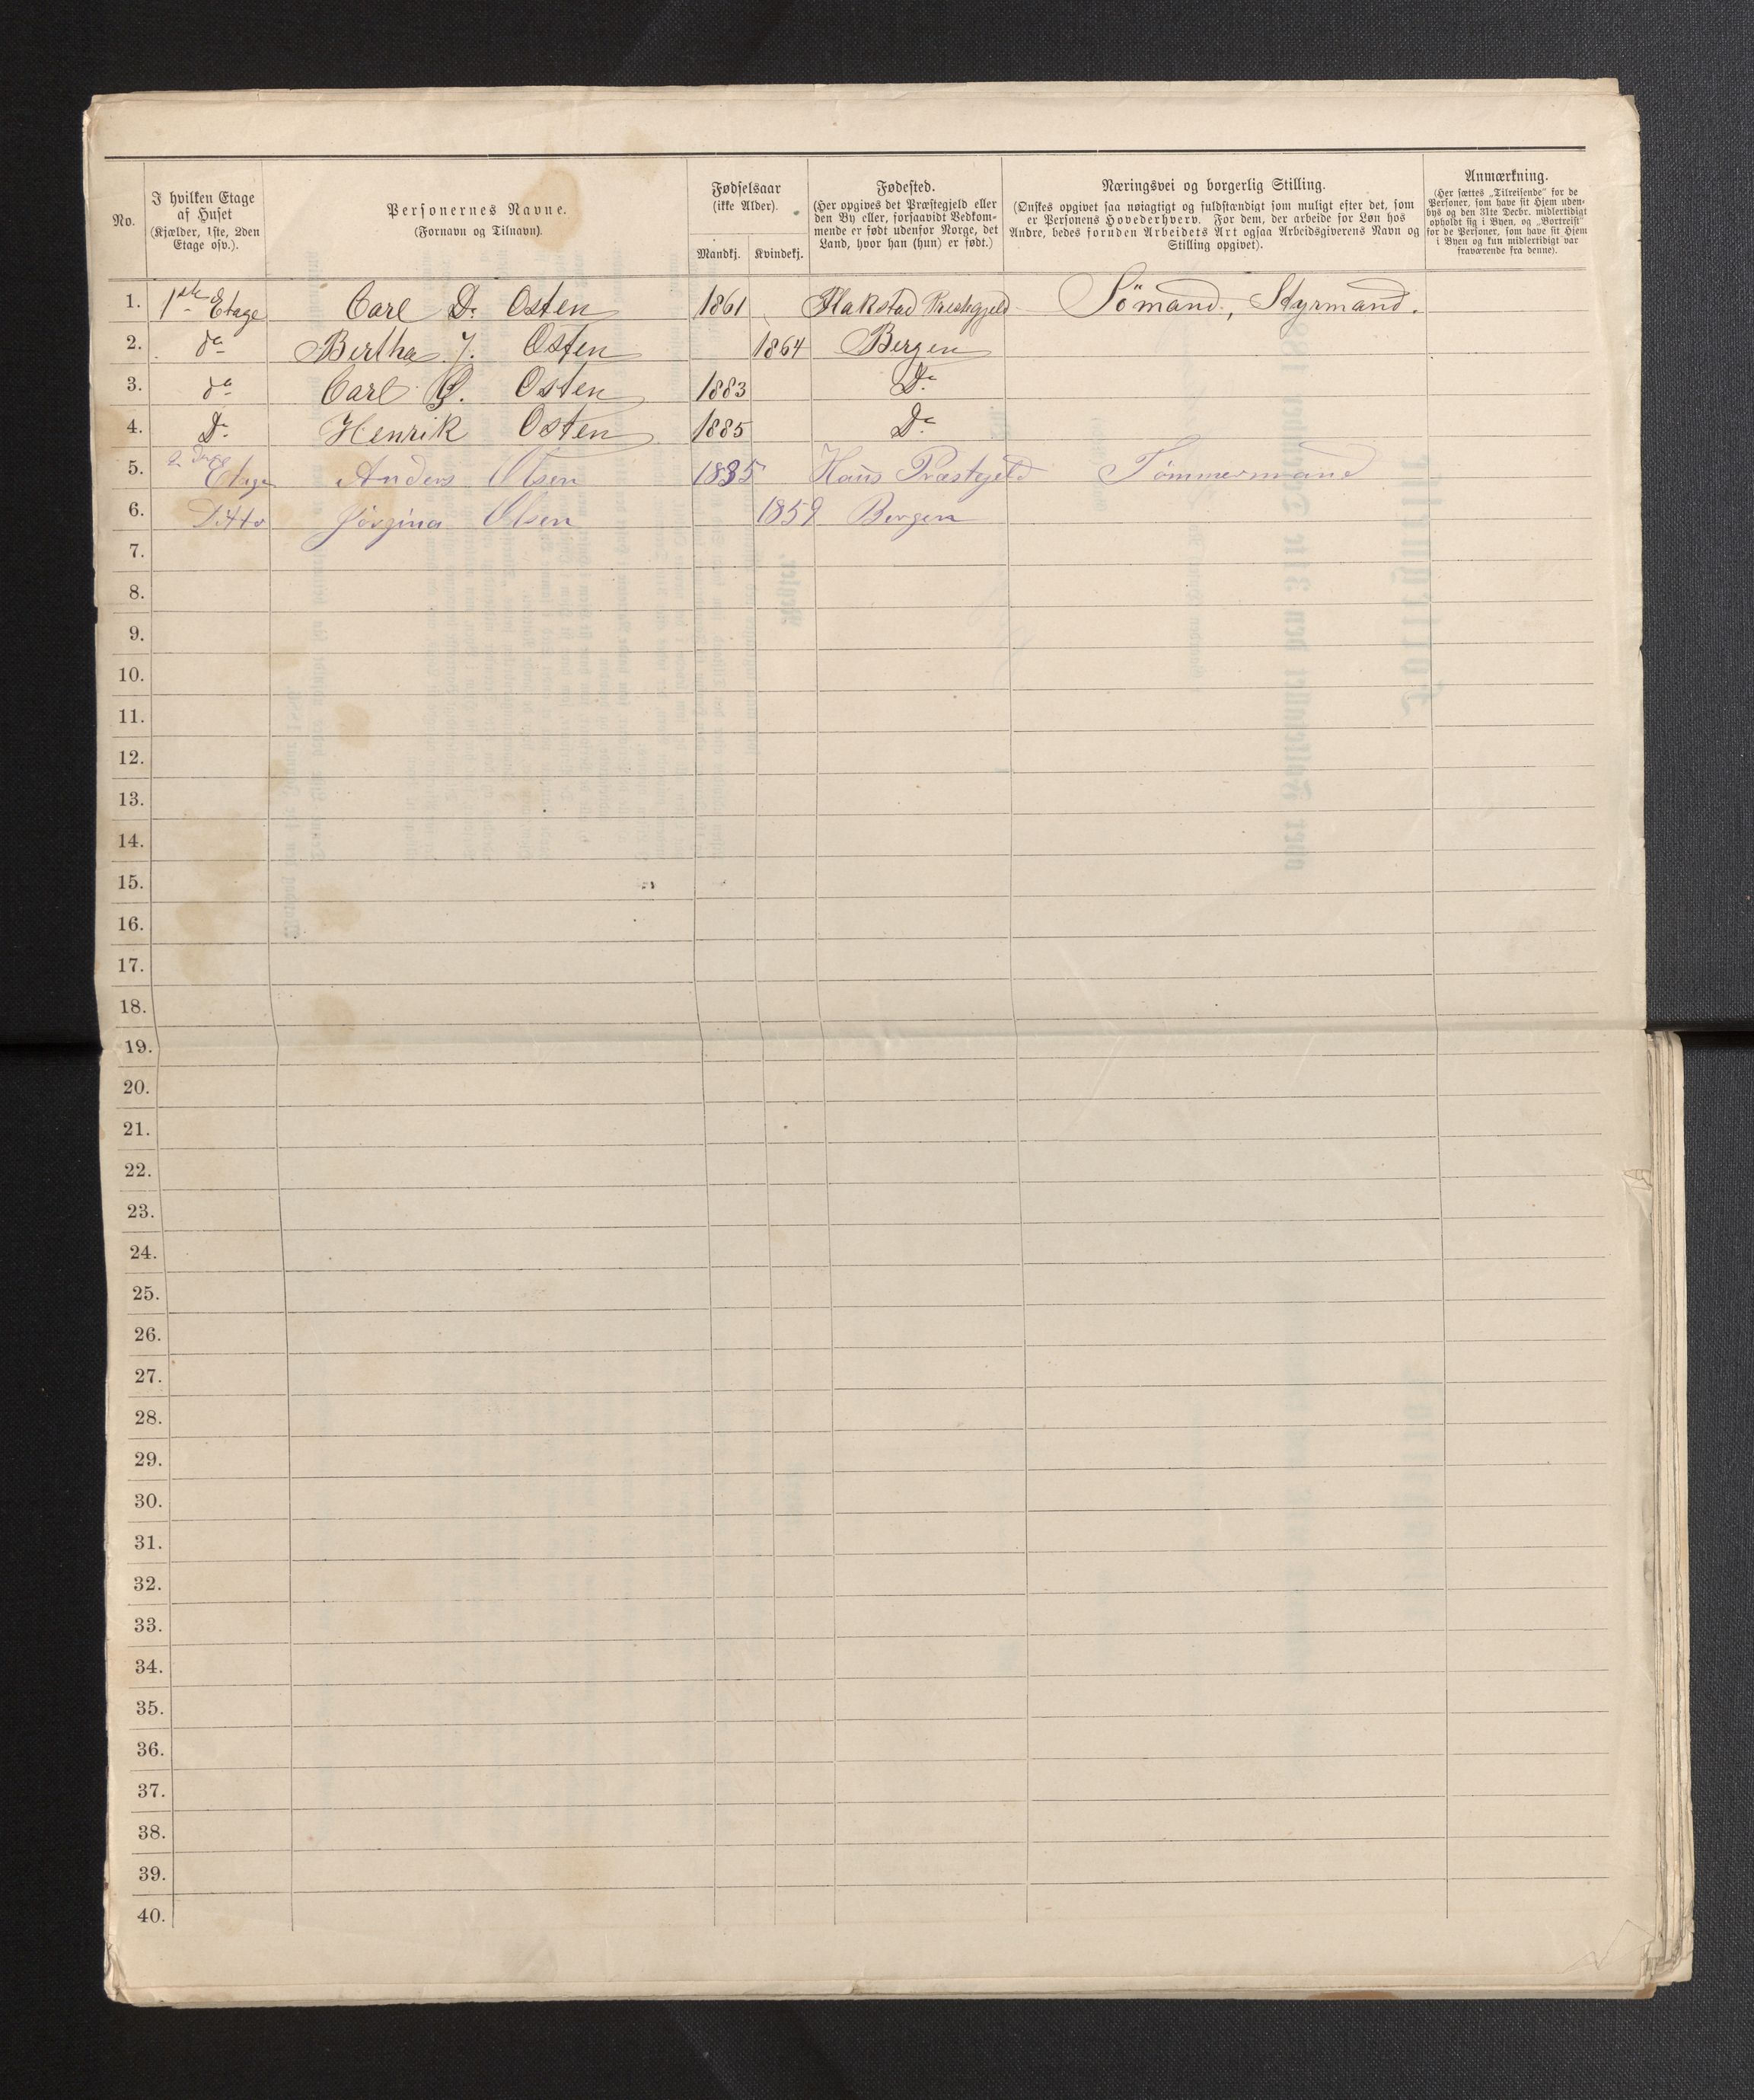 No.
I hvilken Etage
af Huset
(Kjælder, 1ste, 2den
Etage osv.).
Personernes Navne.
(Fornavn og Tilnavn).
Fødselsaar
(ikke Alder).
Mandkj. Kvindekj.
Fødested.
(Her opgives det Præstegjeld eller
den By eller, forsaavidt Vedkom-
mende er født udenfor Norge, det
Land, hvor han (hun) er født.)
Næringsvei og borgerlig Stilling.
(Ønskes opgivet saa nøiagtigt og fuldstændigt som muligt efter det, som
er Personens Hovederhverv. For dem, der arbeide for Løn hos
Andre, bedes foruden Arbeidets Art ogsaa Arbeidsgiverens Navn og
Stilling opgivet).
Anmærkning.
(Her sættes „Tilreisende” for de
Personer, som have sit Hjem uden-
bys og den 31te Decbr. midlertidigt
opholdt sig i Byen, og „Bortreist”
for de Personer, som have sit Hjem
i Byen og kun midlertidigt var
fraværende fra denne).
1. 1ste Etage Carl D. Osten 1861 Flakstad Prestegjeld Sömand, Styrmand.
2. do Bertha J. Osten 1864 Bergen
3. do Carl G. Osten 1883 Do
4. Do Henrik Osten 1885 Do
5. 2den Etage Anders Olsen 1835 Haus Præstgjeld Tømmermand
6. Ditto Jörgina Olsen 1859 Bergen
7.
8.
9.
10.
11.
12.
13.
14.
15.
16.
17.
18.
19.
20.
21.
22.
23.
24.
25.
26.
27.
28.
29.
30.
31.
32.
33.
34.
35.
36.
37.
38.
39.
40.